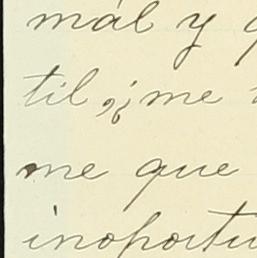 mál y
til, ¿me
me que
inoportu